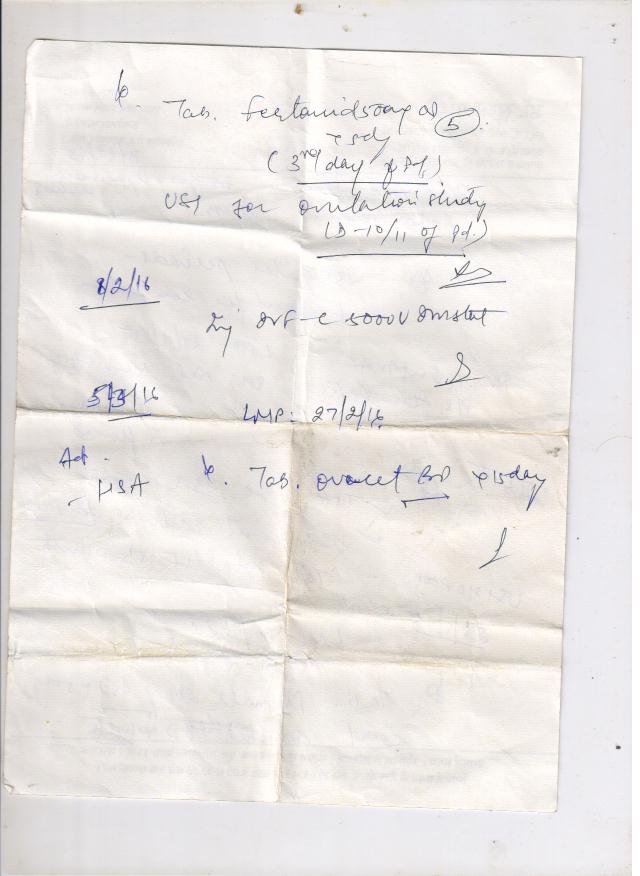 Tab. Fertomid 50mg OD
x 5d
5
(3rd day of Pd.)
USG for ovulation study
(D-10/11 of Pd.)
8/2/16
Inj 5000U
5/3/16
LMP: 27/2/16
Ad.
- HSA
Tab. BD x 15day